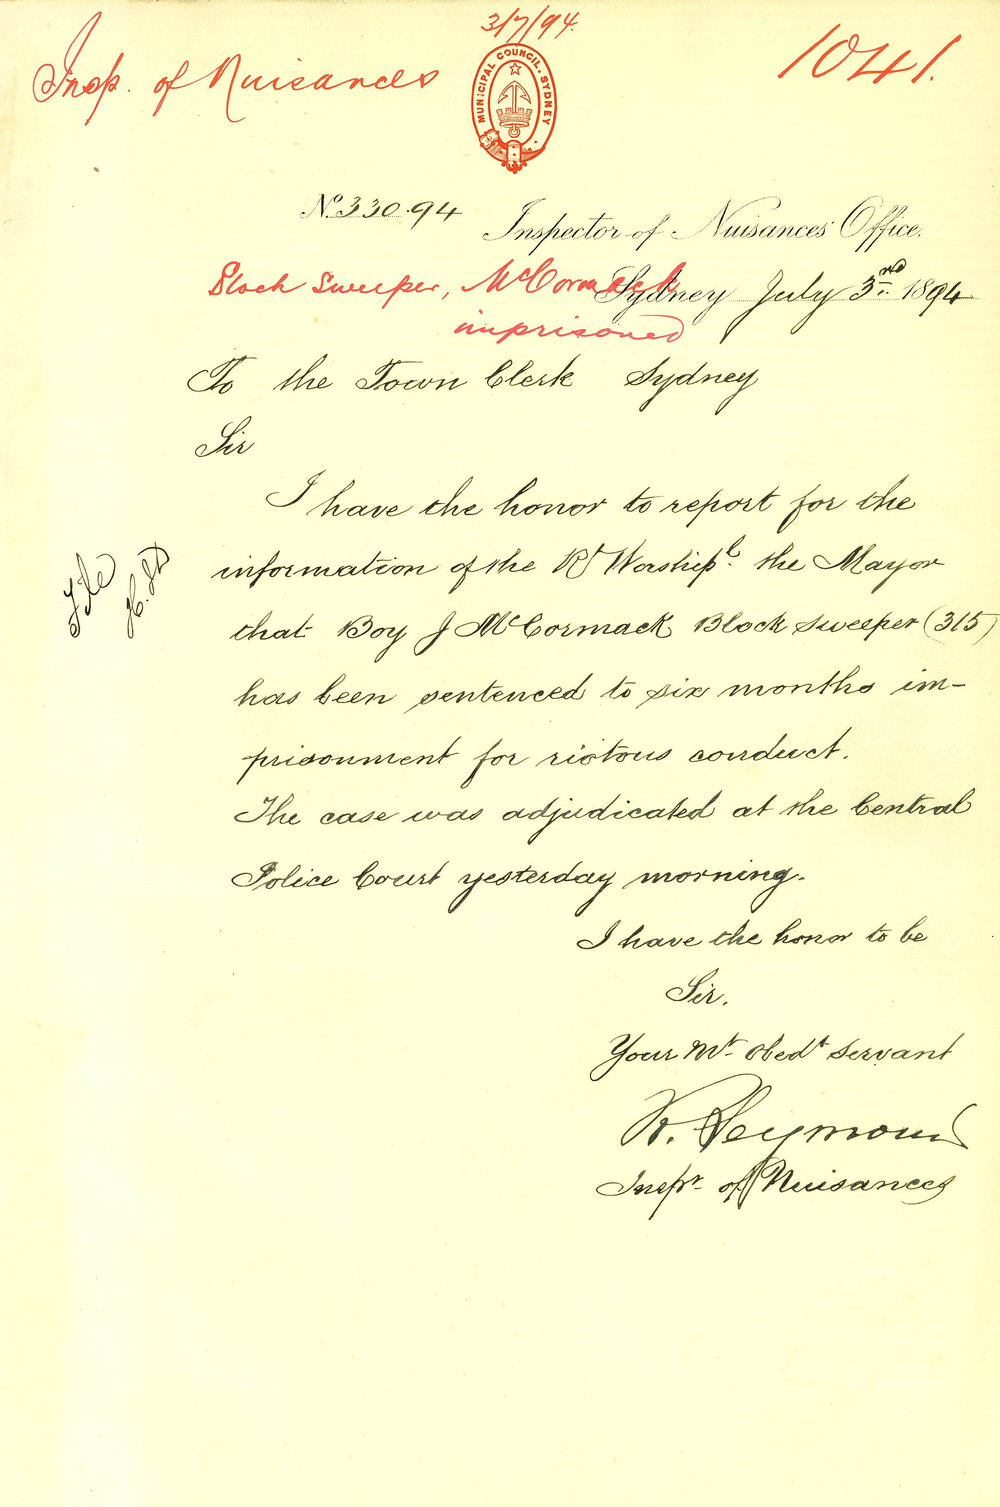 3/7/94.
Insp. of Nuisances
1041.
MUNICIPAL COUNCIL. SYDNEY
No. 330.94
Inspector of Nuisances' Office.
Block Sweeper, McCormack
imprisoned
Sydney July 3rd 1894
To the Town Clerk Sydney
Sir
I have the honor to report for the
information of the Rt Worshipl. the Mayor
that Boy J McCormack Block Sweeper (315)
has been sentenced to six months im-
prisonment for riotous conduct.
The case was adjudicated at the Central
Police Court yesterday morning.
File
I have the honor to be
Sir.
Your Mt. Obedt Servant
R. Seymour
Inspr. of Nuisances